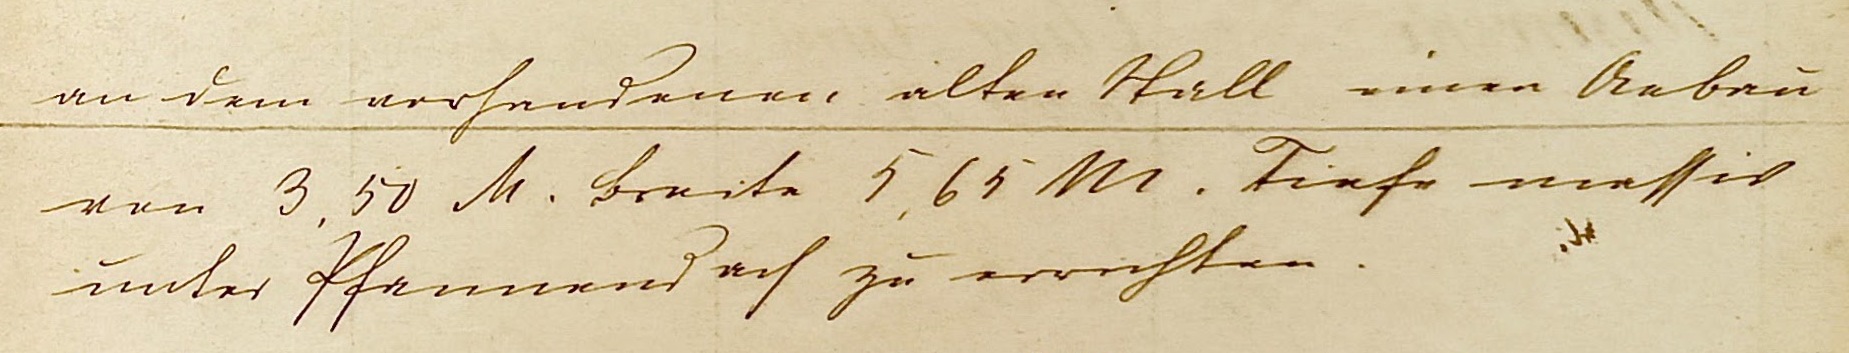 an dem vorhandenen alten Stall einen Anbau
von 3,50 M. Breite 5,65 M. Tiefe massiv
unter Pfannendach zu errichten.